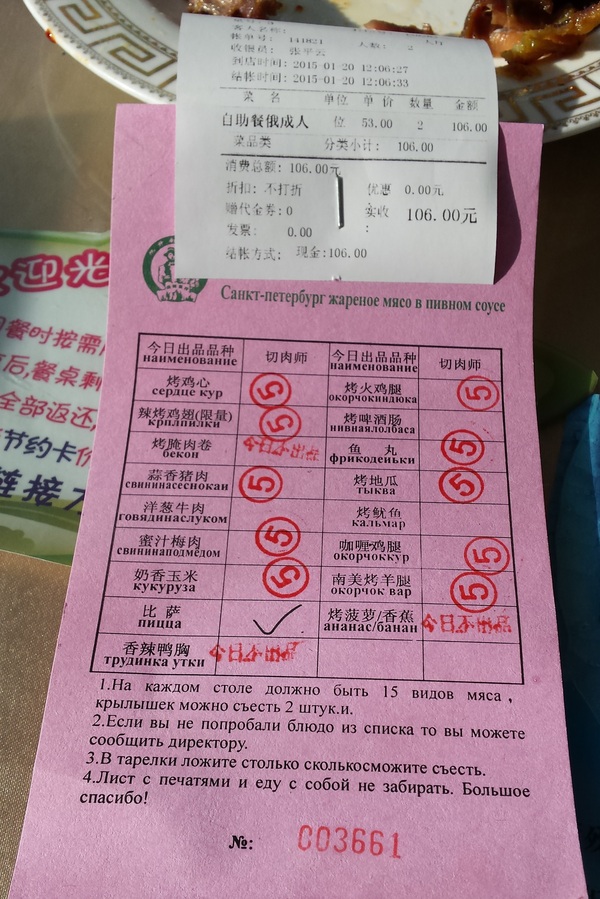 帐单号: 141821 人数: 2
收银员: 张平云
到店时间: 2015-01-20 12:06:27
结帐时间: 2015-01-20 12:06:33
菜 名 单位 单价 数量 金额
自助餐俄成人 位 53.00 2 106.00
菜品类 分类小计: 106.00
消费总额: 106.00元
折扣: 不打折 优惠 0.00元
赠代金券: 0 实收: 106.00元
发票: 0.00
结帐方式: 现金:106.00
Санкт-петербург жареное мясо в пивном соусе
今日出品品种 切肉师 今日出品品种 切肉师
наименование наименование
烤鸡心 ⑤ 烤火鸡腿 ⑤
сердце кур окорочкиндюка
辣烤鸡翅(限量) ⑤ 烤啤酒肠
крплпилки нивнаялолбаса
烤腌肉卷 今日不出品 鱼 丸 ⑤
бекон фрикодеиьки
蒜香猪肉 ⑤ 烤地瓜 ⑤
свининасеснокаи тыква
洋葱牛肉 烤鱿鱼
говядинаслуком кальмар
蜜汁梅肉 ⑤ 咖喱鸡腿 ⑤
свининаподмедом окорочоккур
奶香玉米 ⑤ 南美烤羊腿 ⑤
кукуруза окорчок вар
比 萨 ✓ 烤菠萝/香蕉 今日不出品
пицца ананас/банан
香辣鸭胸 今日不出品
трудинка утки
1.На каждом столе должно быть 15 видов мяса,
крылышек можно съесть 2 штук.и.
2.Если вы не попробали блюдо из списка то вы можете
сообщить директору.
3.В тарелки ложите столько сколькосможите съесть.
4.Лист с печатями и еду с собой не забирать. Большое
спасибо!
№: 003661
迎光
餐时按需
后,餐桌剩
全部返还
节约卡
链接